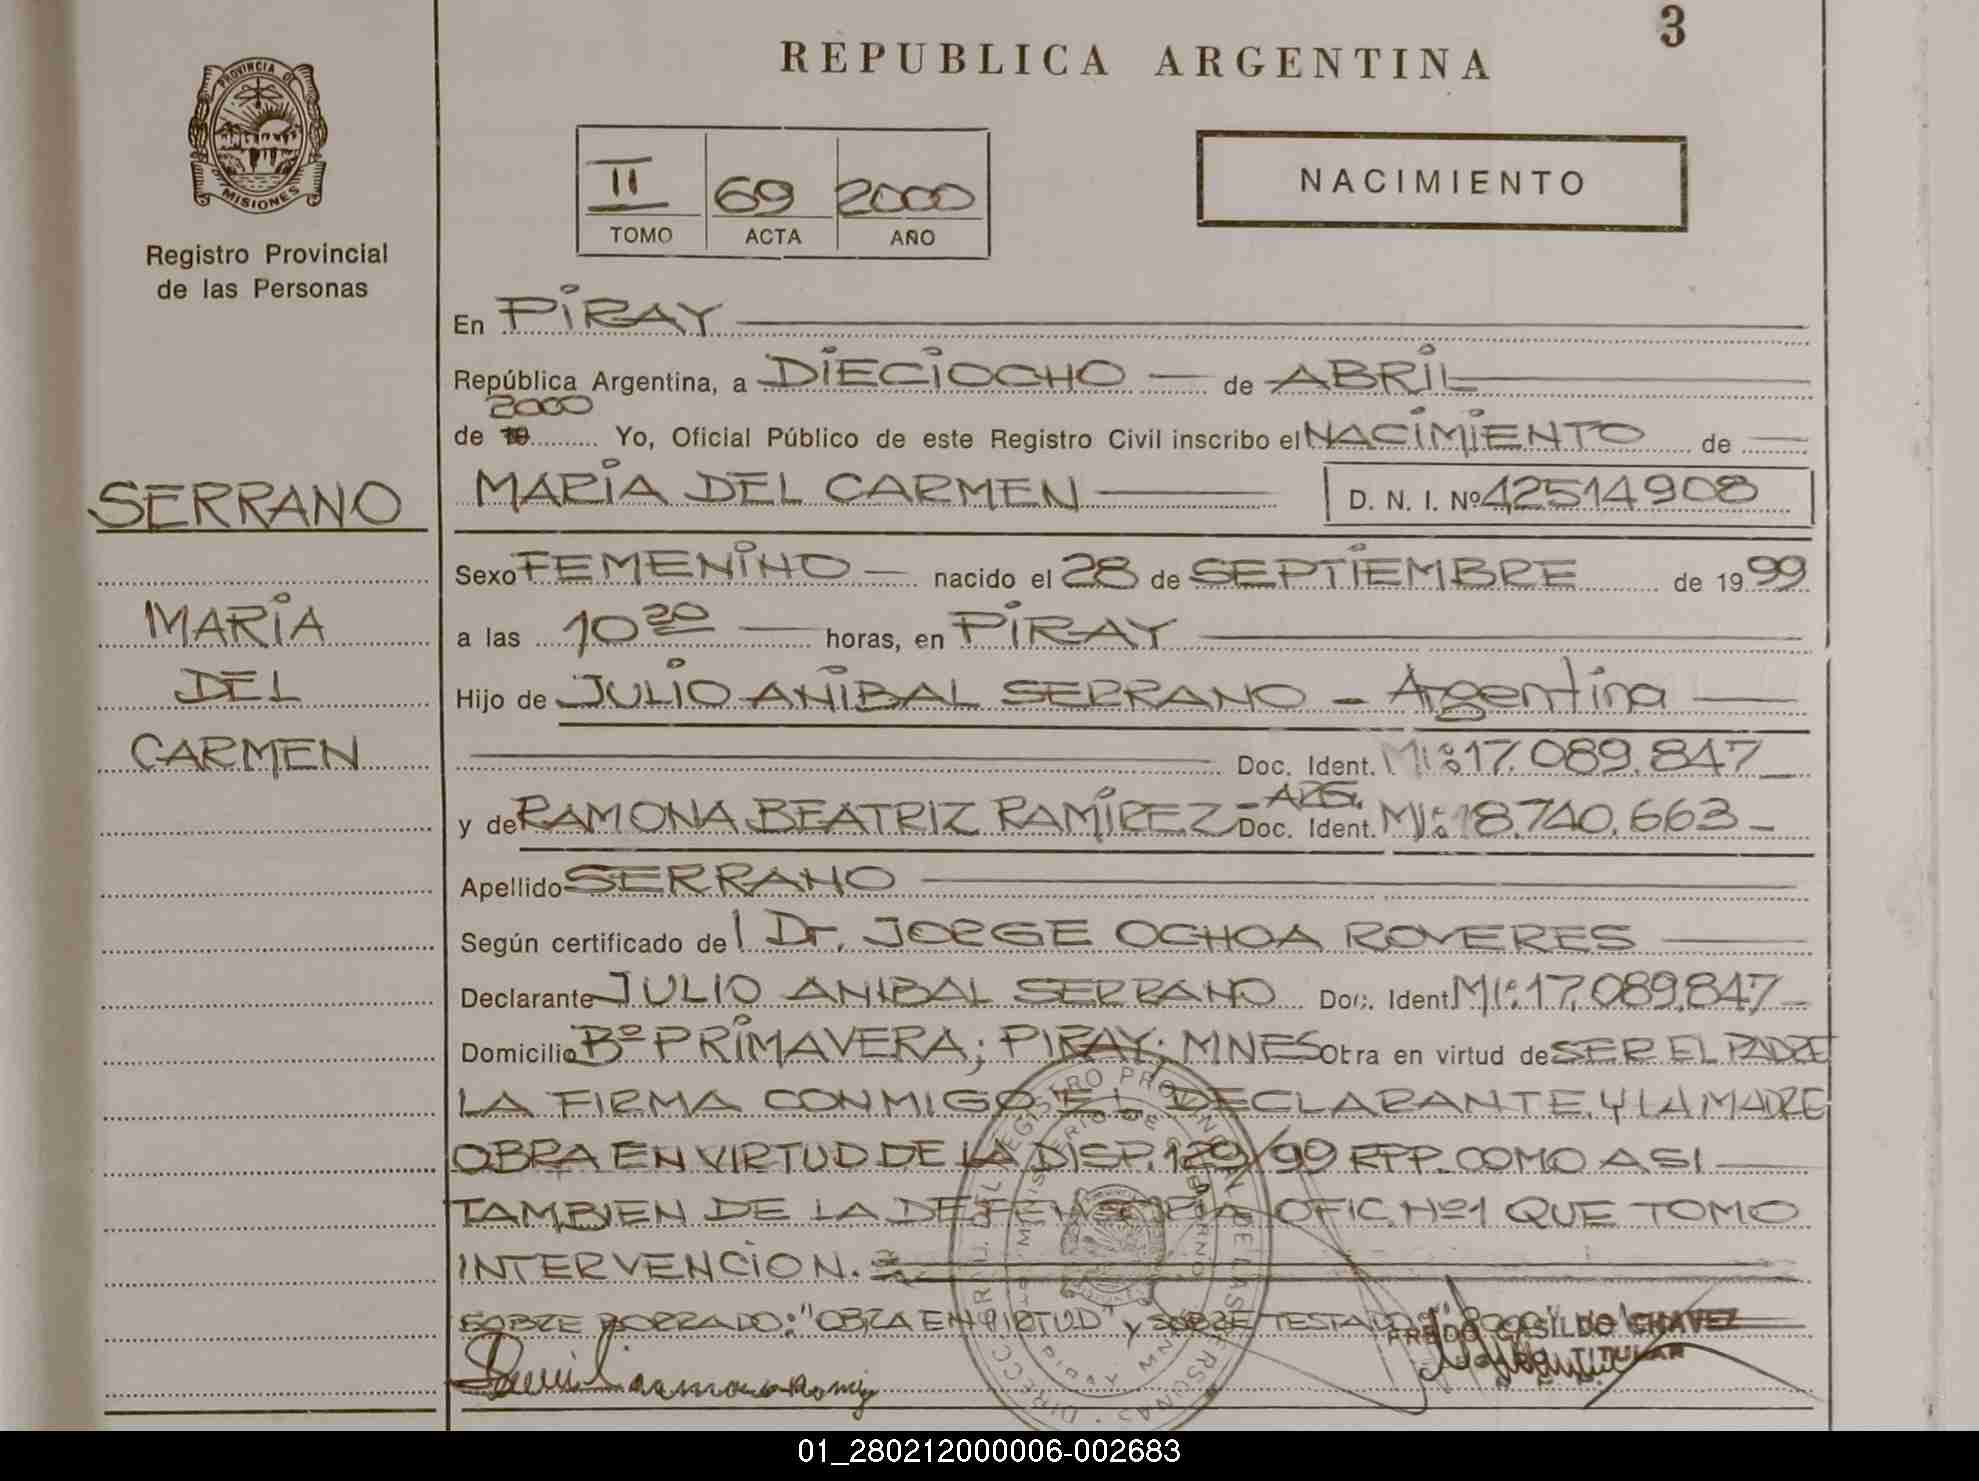 3
REPUBLICA ARGENTINA
PROVINCIA DE
MISIONES
Registro Provincial
de las Personas
II 69 2000
TOMO ACTA AÑO
NACIMIENTO
En PIRAY
República Argentina, a DIECIOCHO de ABRIL
2000
de 19 Yo, Oficial Público de este Registro Civil inscribo el NACIMIENTO de
SERRANO
MARIA DEL CARMEN D. N. I. Nº 42514908
Sexo FEMENINO nacido el 28 de SEPTIEMBRE de 1999
MARIA
a las 10 20 horas, en PIRAY
DEL
Hijo de JULIO ANIBAL SERRANO - Argentina
CARMEN
Doc. Ident. MI: 17.089.847
y de RAMONA BEATRIZ RAMIREZ - ARG. Doc. Ident. MI: 18.740.663
Apellido SERRANO
Según certificado del Dr. JORGE OCHOA ROVERES
Declarante JULIO ANIBAL SERRANO Doc. Ident. MI: 17.089.847
Domicilio Bº PRIMAVERA; PIRAY; MNES Obra en virtud de SER EL PADRE
LA FIRMA CONMIGO EL DECLARANTE Y LA MADRE
OBRA EN VIRTUD DE LA DISP. 129/99 RPP. COMO ASI
TAMBIEN DE LA DEFENSORIA OFIC. Nº1 QUE TOMO
INTERVENCION.
SOBRE BORRADO: "OBRA EN VIRTUD" y SOBRE TESTADO: "2000"
GASILDO CHAVEZ
TITULAR
01_280212000006-002683